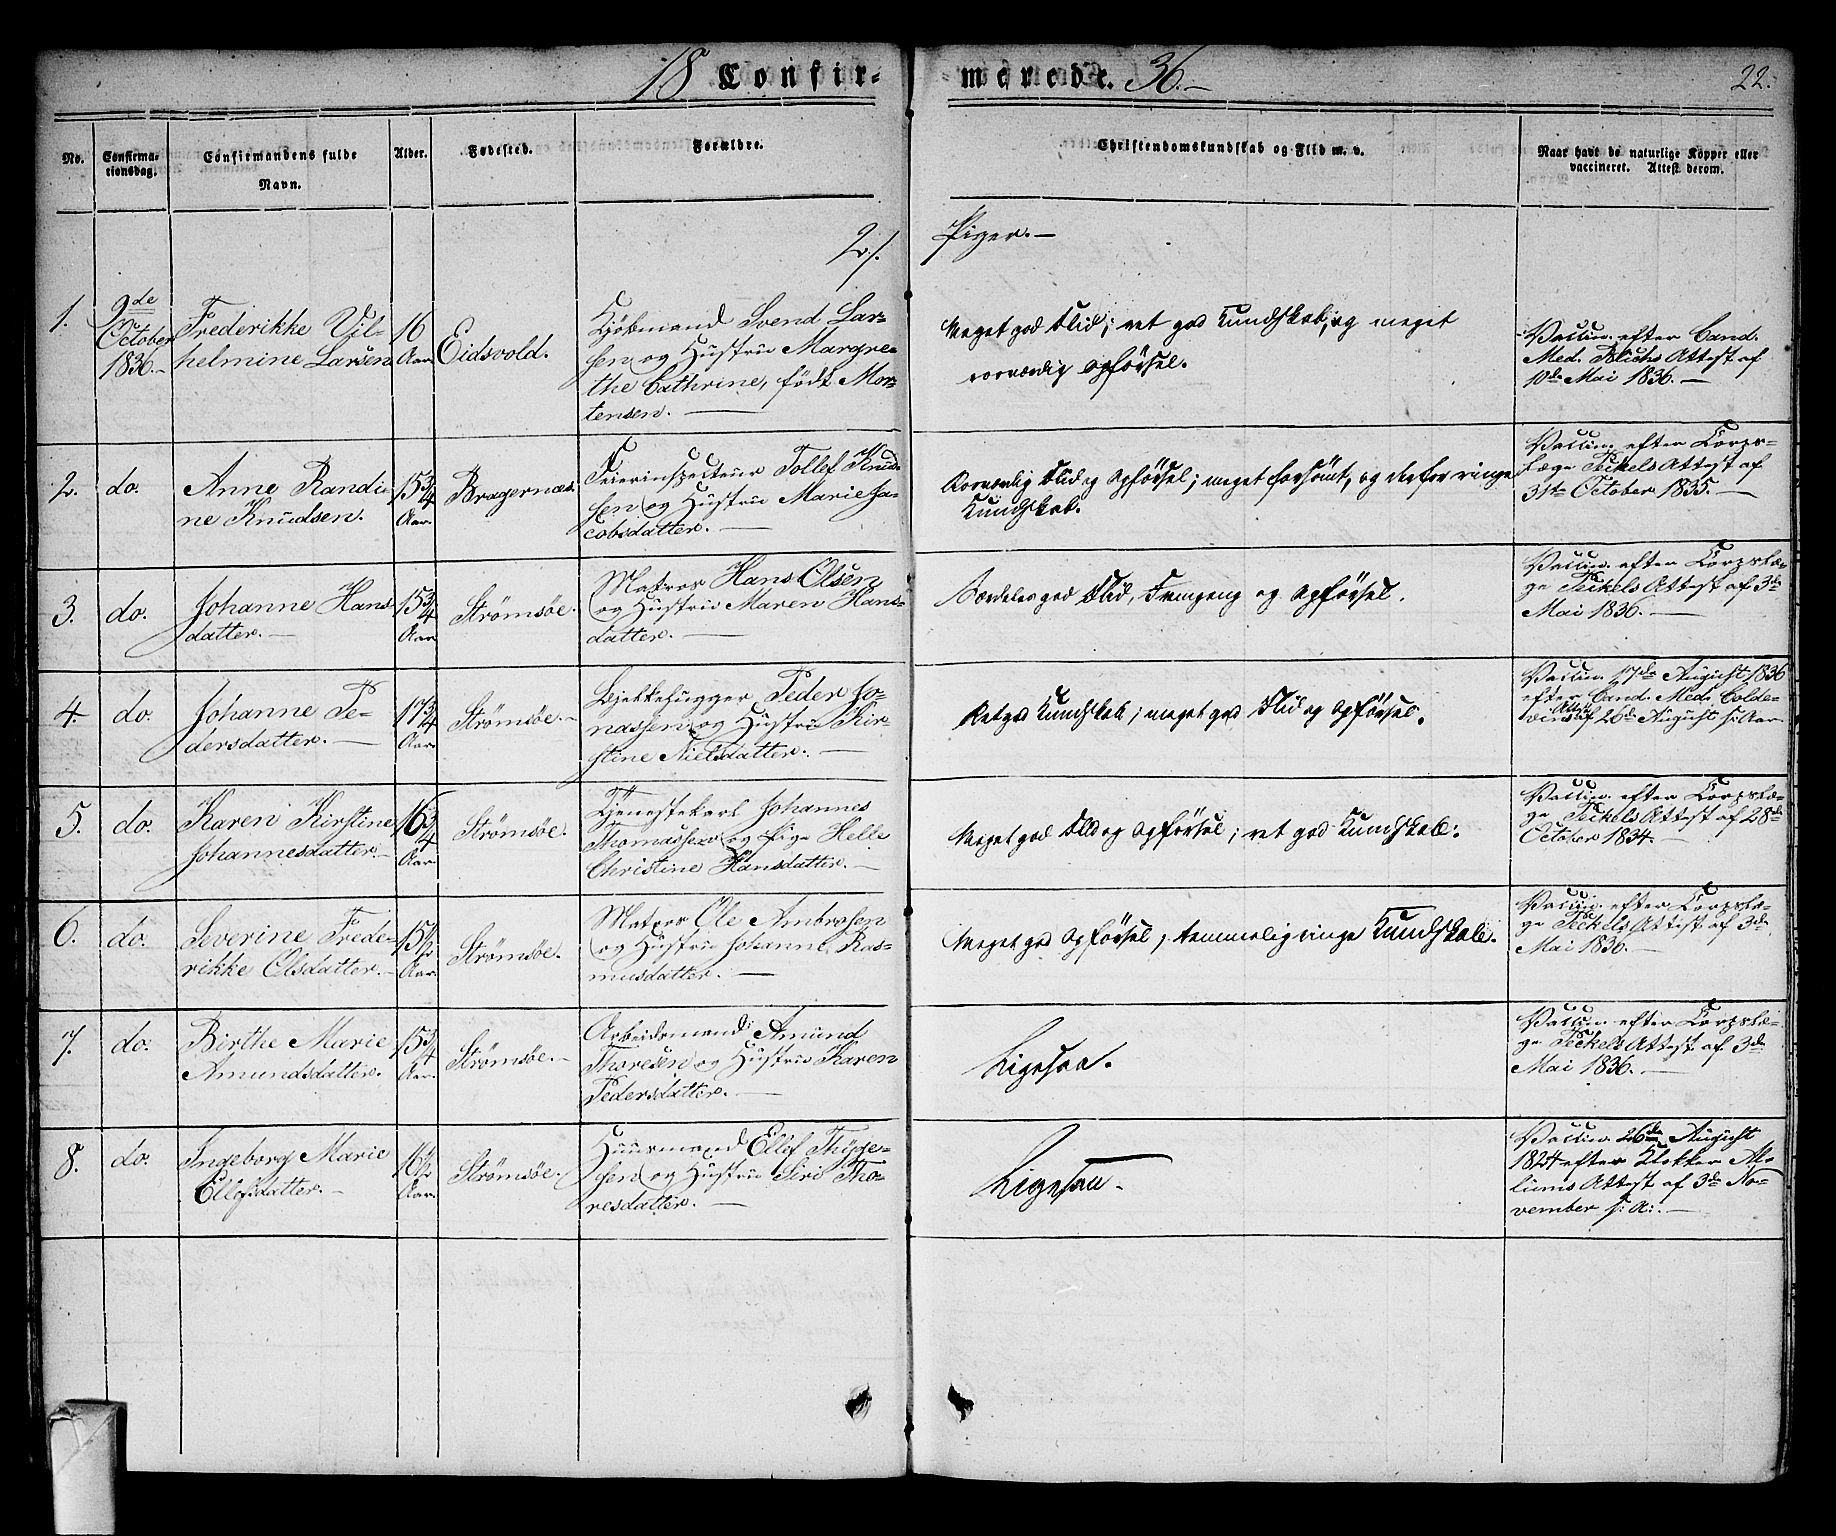 18 Confir-
merede. 36.-
22.
No.
Confirma-
tionsdag.
Confirmandens fulde
Navn.
Alder.
Fødested.
Forældre.
Christendomskundskab og Flid m. v.
Naar havt de naturlige Kopper eller
vaccineret. Attest derom.
2./.
Piger.-
1.
9de
October
1836.-
Frederikke Vil-
helmine Larsen
16
Aar
Eidsvold.
Kjøbmand Svend Lar-
sen og Hustru Margre-
the Cathrine, født Mor-
tensen. -
Meget god Flid; ret god Kundskab, og meget
sorværdig Opførsel.
Vaccin. efter Cand.
Med. Blichs Attest af
10de Mai 1836. -
2.
do.
Anne Randi-
ne Knudsen.
15 3/4
Aar.
Bragernæs.
Feierinspecteur Tollef Knud-
sen og Hustru Marie Ja-
cobsdatter. -
Flid og Opførsel; meget forsømt, og derfor ringe
Kundskab.
Vaccin. efter Corps-
læge Teckels Attest af
31te October 1835. -
3.
do.
Johanne Hans
datter. -
15 3/4
Aar
Strømsøe.
Matros Hans Olsen
og Hustru Maren Hans-
datter. -
Særdeles god Flid, Fremgang og Opførsel.
Vaccin. efter Corpslæ-
ge Teckels Attest af 3de
Mai 1836. -
4.
do.
Johanne Pe-
dersdatter. -
17 3/4
Aar.
Strømsøe. -
Bjelkehugger Peder Jo-
nassen og Hustru Kir-
stine Nielsdatter. -
Ret god Kundskab; meget god Flid og Opførsel.
Vaccin. 17de August 1836
efter Cand. Med. Colde-
vins Attest af 26de August s: Aar
5.
do.
Karen Kirstine
Johannesdatter. -
16 3/4
Aar.
Strømsøe.
Tjenestekarl Johannes
Thomassen og Pige Helle
Christine Hansdatter. -
Meget god Flid og Opførsel; ret god Kundskab.
Vaccin. efter Corpslæ-
ge Teckels Attest af 28de
October 1834. -
6.
do.
Severine Frede-
rikke Olsdatter. -
15 1/2
Aar.
Strømsøe.
Matros Ole Ambrosen
og Hustru Johanne Ras-
musdatter. -
Meget god Opførsel, temmelig ringe Kundskab.
Vaccin. efter Corpslæ-
ge Teckels Attest af 3de
Mai 1836. -
7.
do.
Birthe Marie
Amundsdatter.
15 3/4
Aar.
Strømsøe. -
Arbeidsmand Amund
Thoresen og Hustru Karen
Pedersdatter. -
Ligesaa.
Vaccin. efter Corpslæ-
ge Teckels Attest af 3de
Mai 1836. -
8.
do.
Ingeborg Marie
Ellefsdatter. -
16 1/2
Aar.
Strømsøe.
Huusmand Ellef Thøge-
sen og Hustru Siri Tho-
resdatter. -
Ligesaa.
Vaccin. 26de August
1824 efter Klokker Mo-
lums Attest af 3de No-
vember s: A:. -